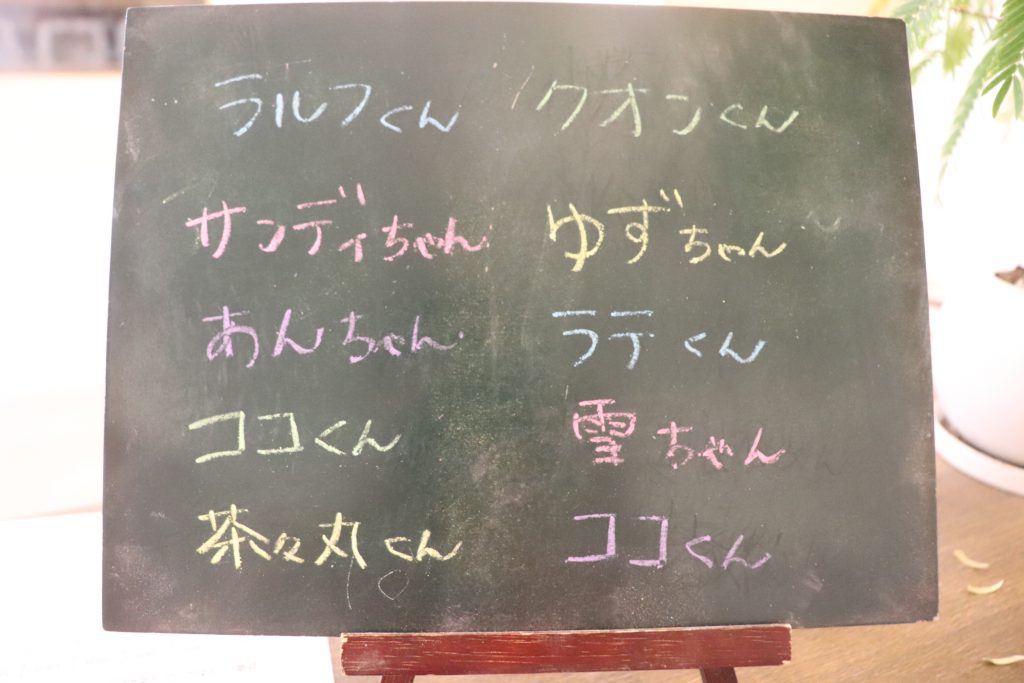 ラルフくん クオンくん
サンディちゃん ゆずちゃん
あんちゃん ラテくん
ココくん 雪ちゃん
茶々丸くん ココくん